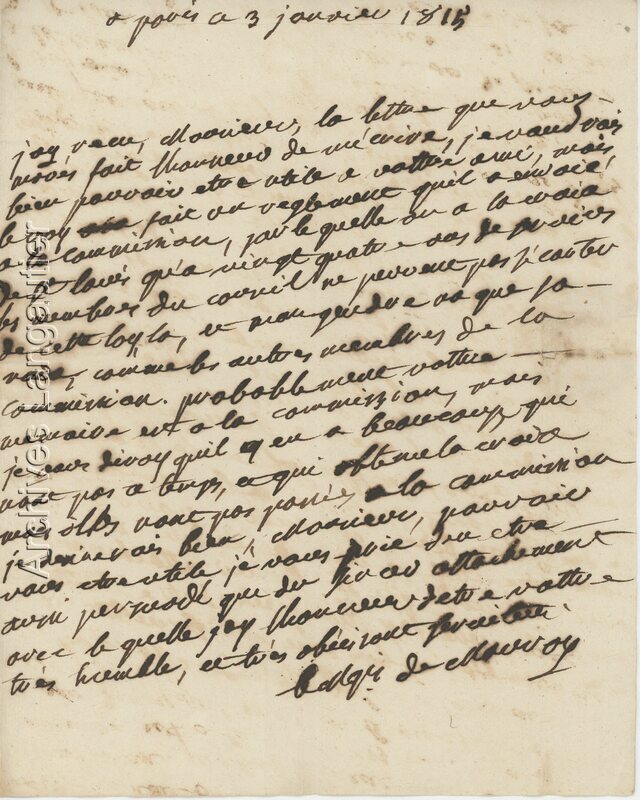 a paris ce 3 janvier 1815
jay recu, Monsieur, la lettre que vous
mavés fait lhonneur de mécrire, je voudrois
bien pouvoir etre utile a vottre ami, mais
le roy fait un reglement qu'il a envoié
a la commission, par lequelle on a la croix
de st louis qu'a vingt quatre ans de services
les membres du conseil ne peuvent pas s'écarter
de cette loy la, et mon gendre na que sa
voix, comme les autres membres de la
commission. probablement vottre
memoire est a la commission, mais
je vous diray quil y en a beaucoup qui
nont pas le temps, et qui obtenu la croix
mais elles nont pas passées a la commission
je desirerois bien, Monsieur, pouvoir
vous etre utile, je vous prie den etre
aussi persuadé que du sincer attachement
avec lequelle jay lhonneur detre vottre
trés humble, et trés obéissant serviteur
le Mqis de
Archives Langeattier